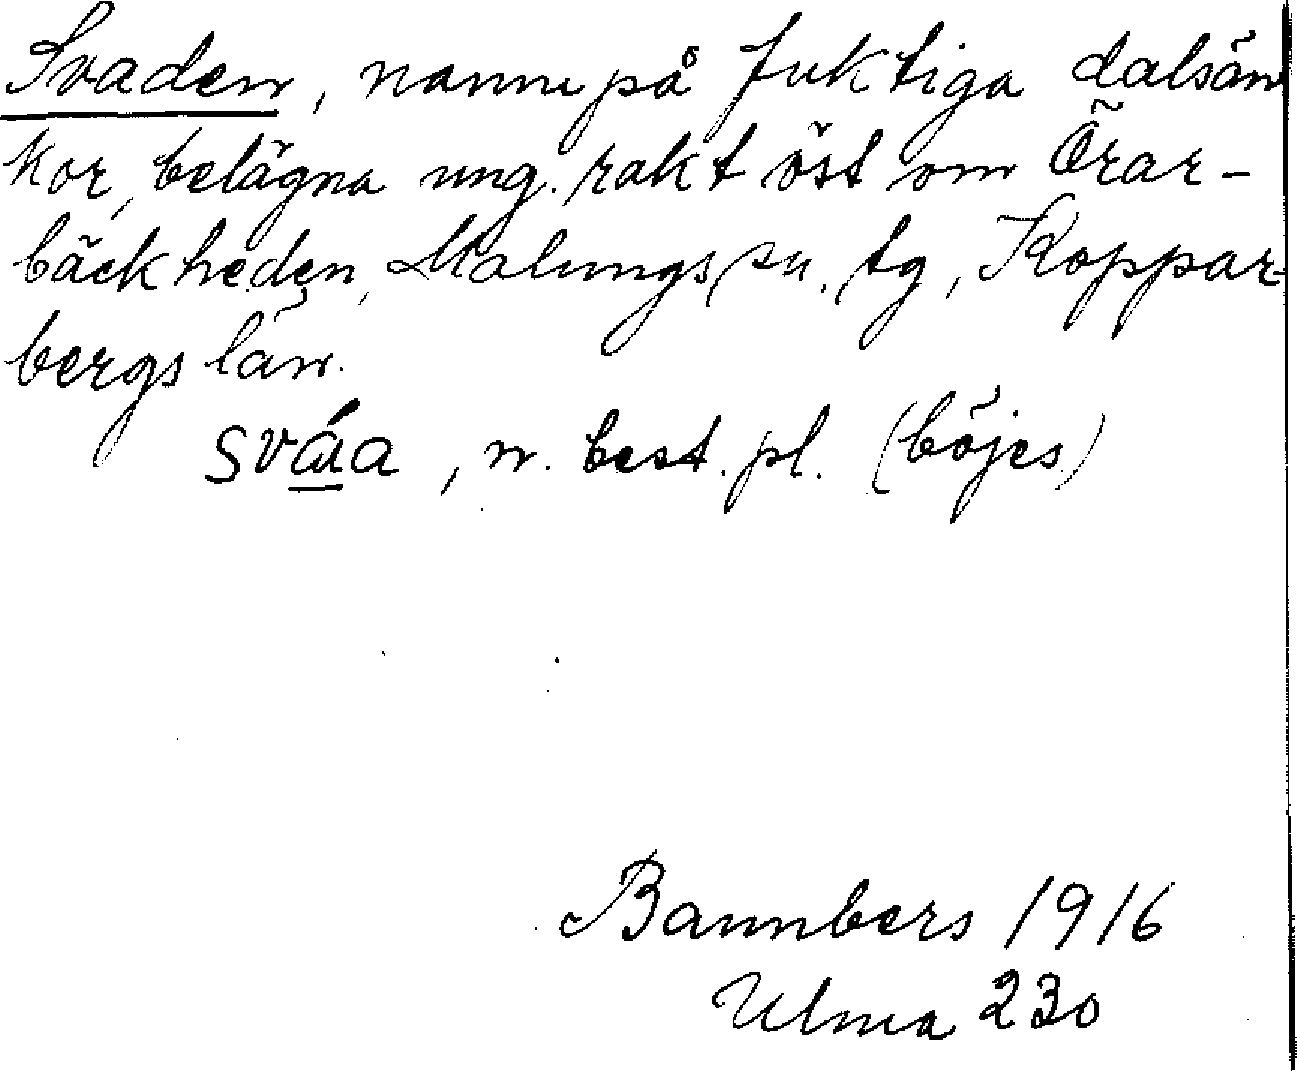 Svaden, namn på fuktiga dalsän
kor, belägna ung. rakt öst om Örar-
bäckheden, Malungs sn. tg, Koppar-
bergs län.
sváa, n. best. pl. (böjes)
Bannbers 1916
Ulma 230